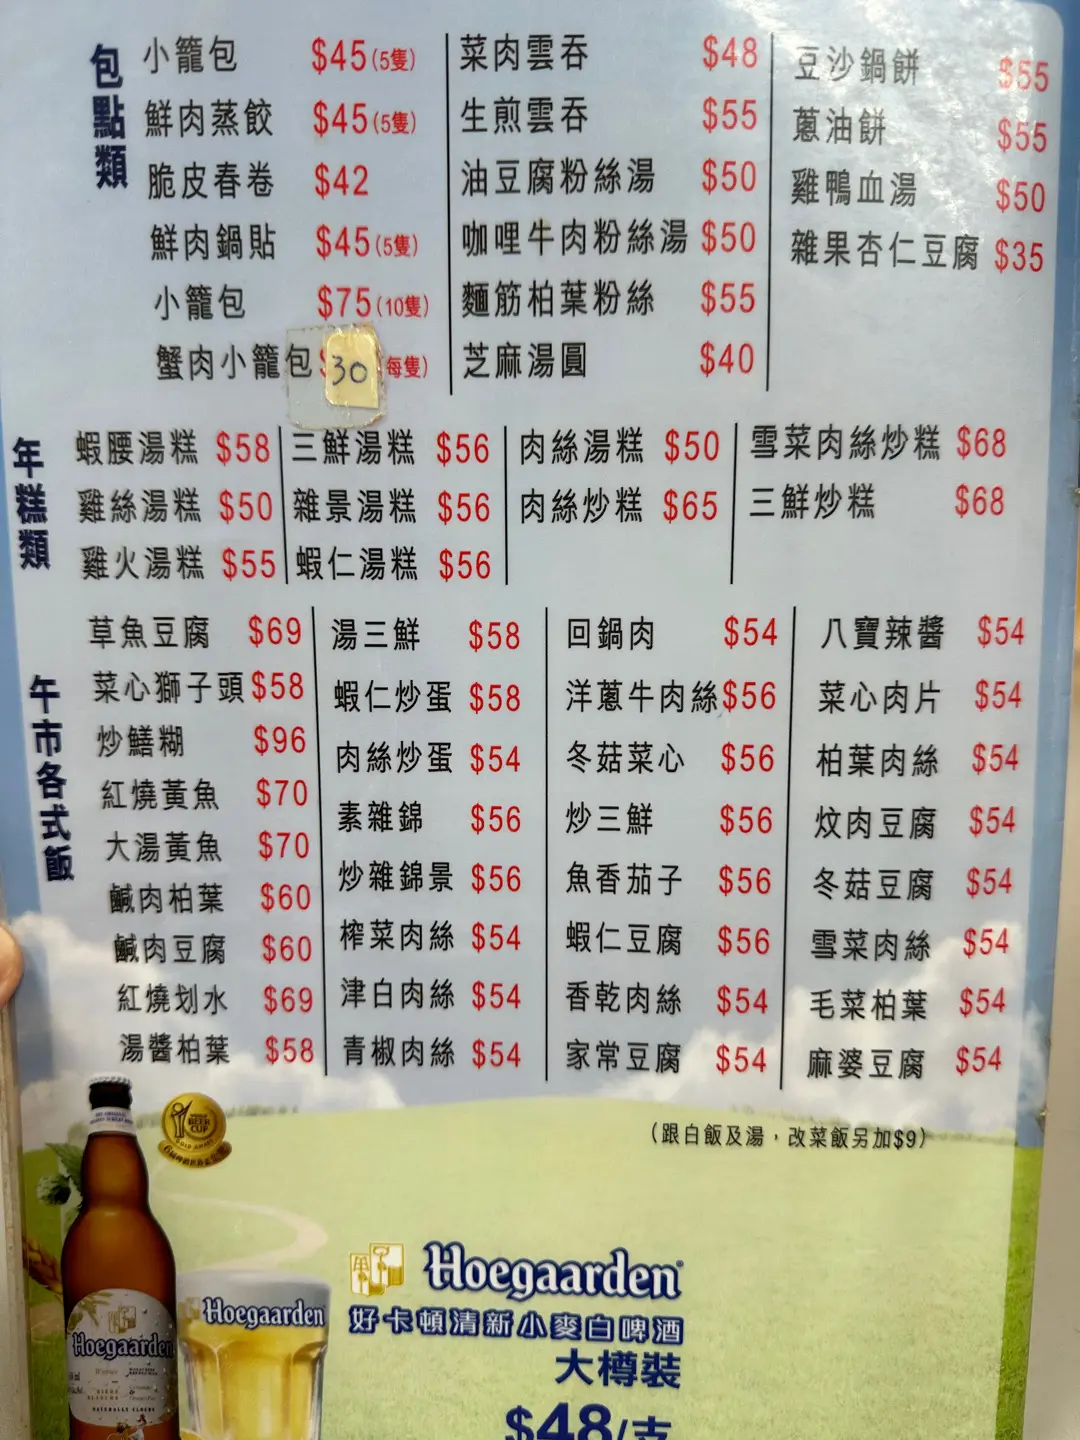 包點類
小籠包 $45(5隻)
鮮肉蒸餃 $45(5隻)
脆皮春卷 $42
鮮肉鍋貼 $45(5隻)
小籠包 $75(10隻)
蟹肉小籠包 30 每隻)
菜肉雲吞 $48
生煎雲吞 $55
油豆腐粉絲湯 $50
咖哩牛肉粉絲湯 $50
麵筋柏葉粉絲 $55
芝麻湯圓 $40
豆沙鍋餅 $55
蔥油餅 $55
雞鴨血湯 $50
雜果杏仁豆腐 $35
年糕類
蝦腰湯糕 $58
雞絲湯糕 $50
雞火湯糕 $55
三鮮湯糕 $56
雜景湯糕 $56
蝦仁湯糕 $56
肉絲湯糕 $50
肉絲炒糕 $65
雪菜肉絲炒糕 $68
三鮮炒糕 $68
午市各式飯
草魚豆腐 $69
菜心獅子頭 $58
炒鱔糊 $96
紅燒黃魚 $70
大湯黃魚 $70
鹹肉柏葉 $60
鹹肉豆腐 $60
紅燒划水 $69
湯醬柏葉 $58
湯三鮮 $58
蝦仁炒蛋 $58
肉絲炒蛋 $54
素雜錦 $56
炒雜錦景 $56
榨菜肉絲 $54
津白肉絲 $54
青椒肉絲 $54
回鍋肉 $54
洋蔥牛肉絲 $56
冬菇菜心 $56
炒三鮮 $56
魚香茄子 $56
蝦仁豆腐 $56
香乾肉絲 $54
家常豆腐 $54
八寶辣醬 $54
菜心肉片 $54
柏葉肉絲 $54
炆肉豆腐 $54
冬菇豆腐 $54
雪菜肉絲 $54
毛菜柏葉 $54
麻婆豆腐 $54
(跟白飯及湯，改菜飯另加$9)
WORLD
BEER
CUP
GOLD AWARD
Hoegaarden
Hoegaarden
Hoegaarden
好卡頓清新小麥白啤酒
大樽裝
$48/支